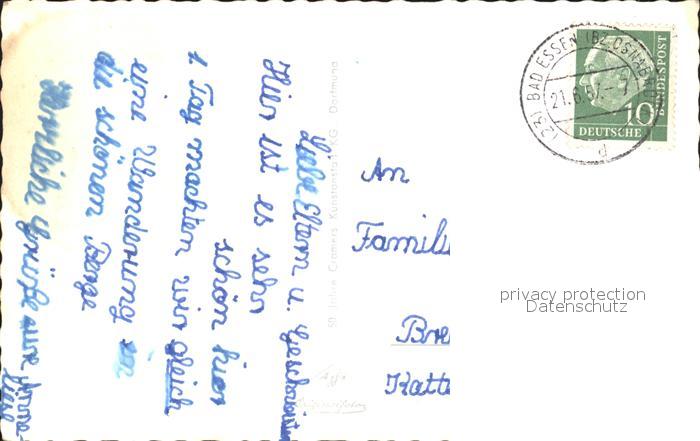 Liebe Eltern u. Geschwister
Hier ist es sehr
schön hier
1 Tag machten wir gleich
eine Wanderung in
die schönen Berge
Herzliche Grüße eure Anne-
An
Famili
Bre
Katte
50 Jahre Cramers Kunstanstalt KG Dortmund
(23) BAD ESSEN (BZ. OSNABR
21.8.57.-7
d
10
DEUTSCHE
BUNDESPOST
privacy protection
Datenschutz